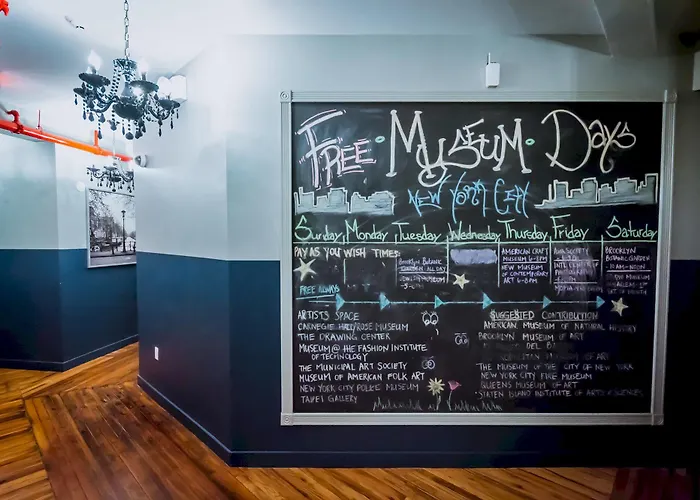 FREE MUSEUM DAYS
NEW YORK CITY
Sunday Monday Tuesday Wednesday Thursday Friday Saturday
PAY AS YOU WISH TIMES:
BROOKLYN BOTANIC
ALL DAY
AMERICAN CRAFT
MUSEUM 6-8PM
NEW MUSEUM
OF CONTEMPORARY
ART 6-8PM
ASIA SOCIETY
PHOTOGRAPHY
BROOKLYN
BOTANIC GARDEN
10AM-NOON
MUSEUM
1ST
SAT OF MONTH
FREE ALWAYS
ARTISTS SPACE
CARNEGIE HALL/ROSE MUSEUM
THE DRAWING CENTER
MUSEUM @ THE FASHION INSTITUTE
OF TECHNOLOGY
THE MUNICIPAL ART SOCIETY
MUSEUM OF AMERICAN FOLK ART
NEW YORK CITY POLICE MUSEUM
GALLERY
SUGGESTED CONTRIBUTION
AMERICAN MUSEUM OF NATURAL HISTORY
BROOKLYN MUSEUM OF ART
DEL
MUSEUM OF ART
THE MUSEUM OF THE CITY OF NEW YORK
NEW YORK CITY FIRE MUSEUM
QUEENS MUSEUM OF ART
STATEN ISLAND INSTITUTE OF ARTS & SCIENCES